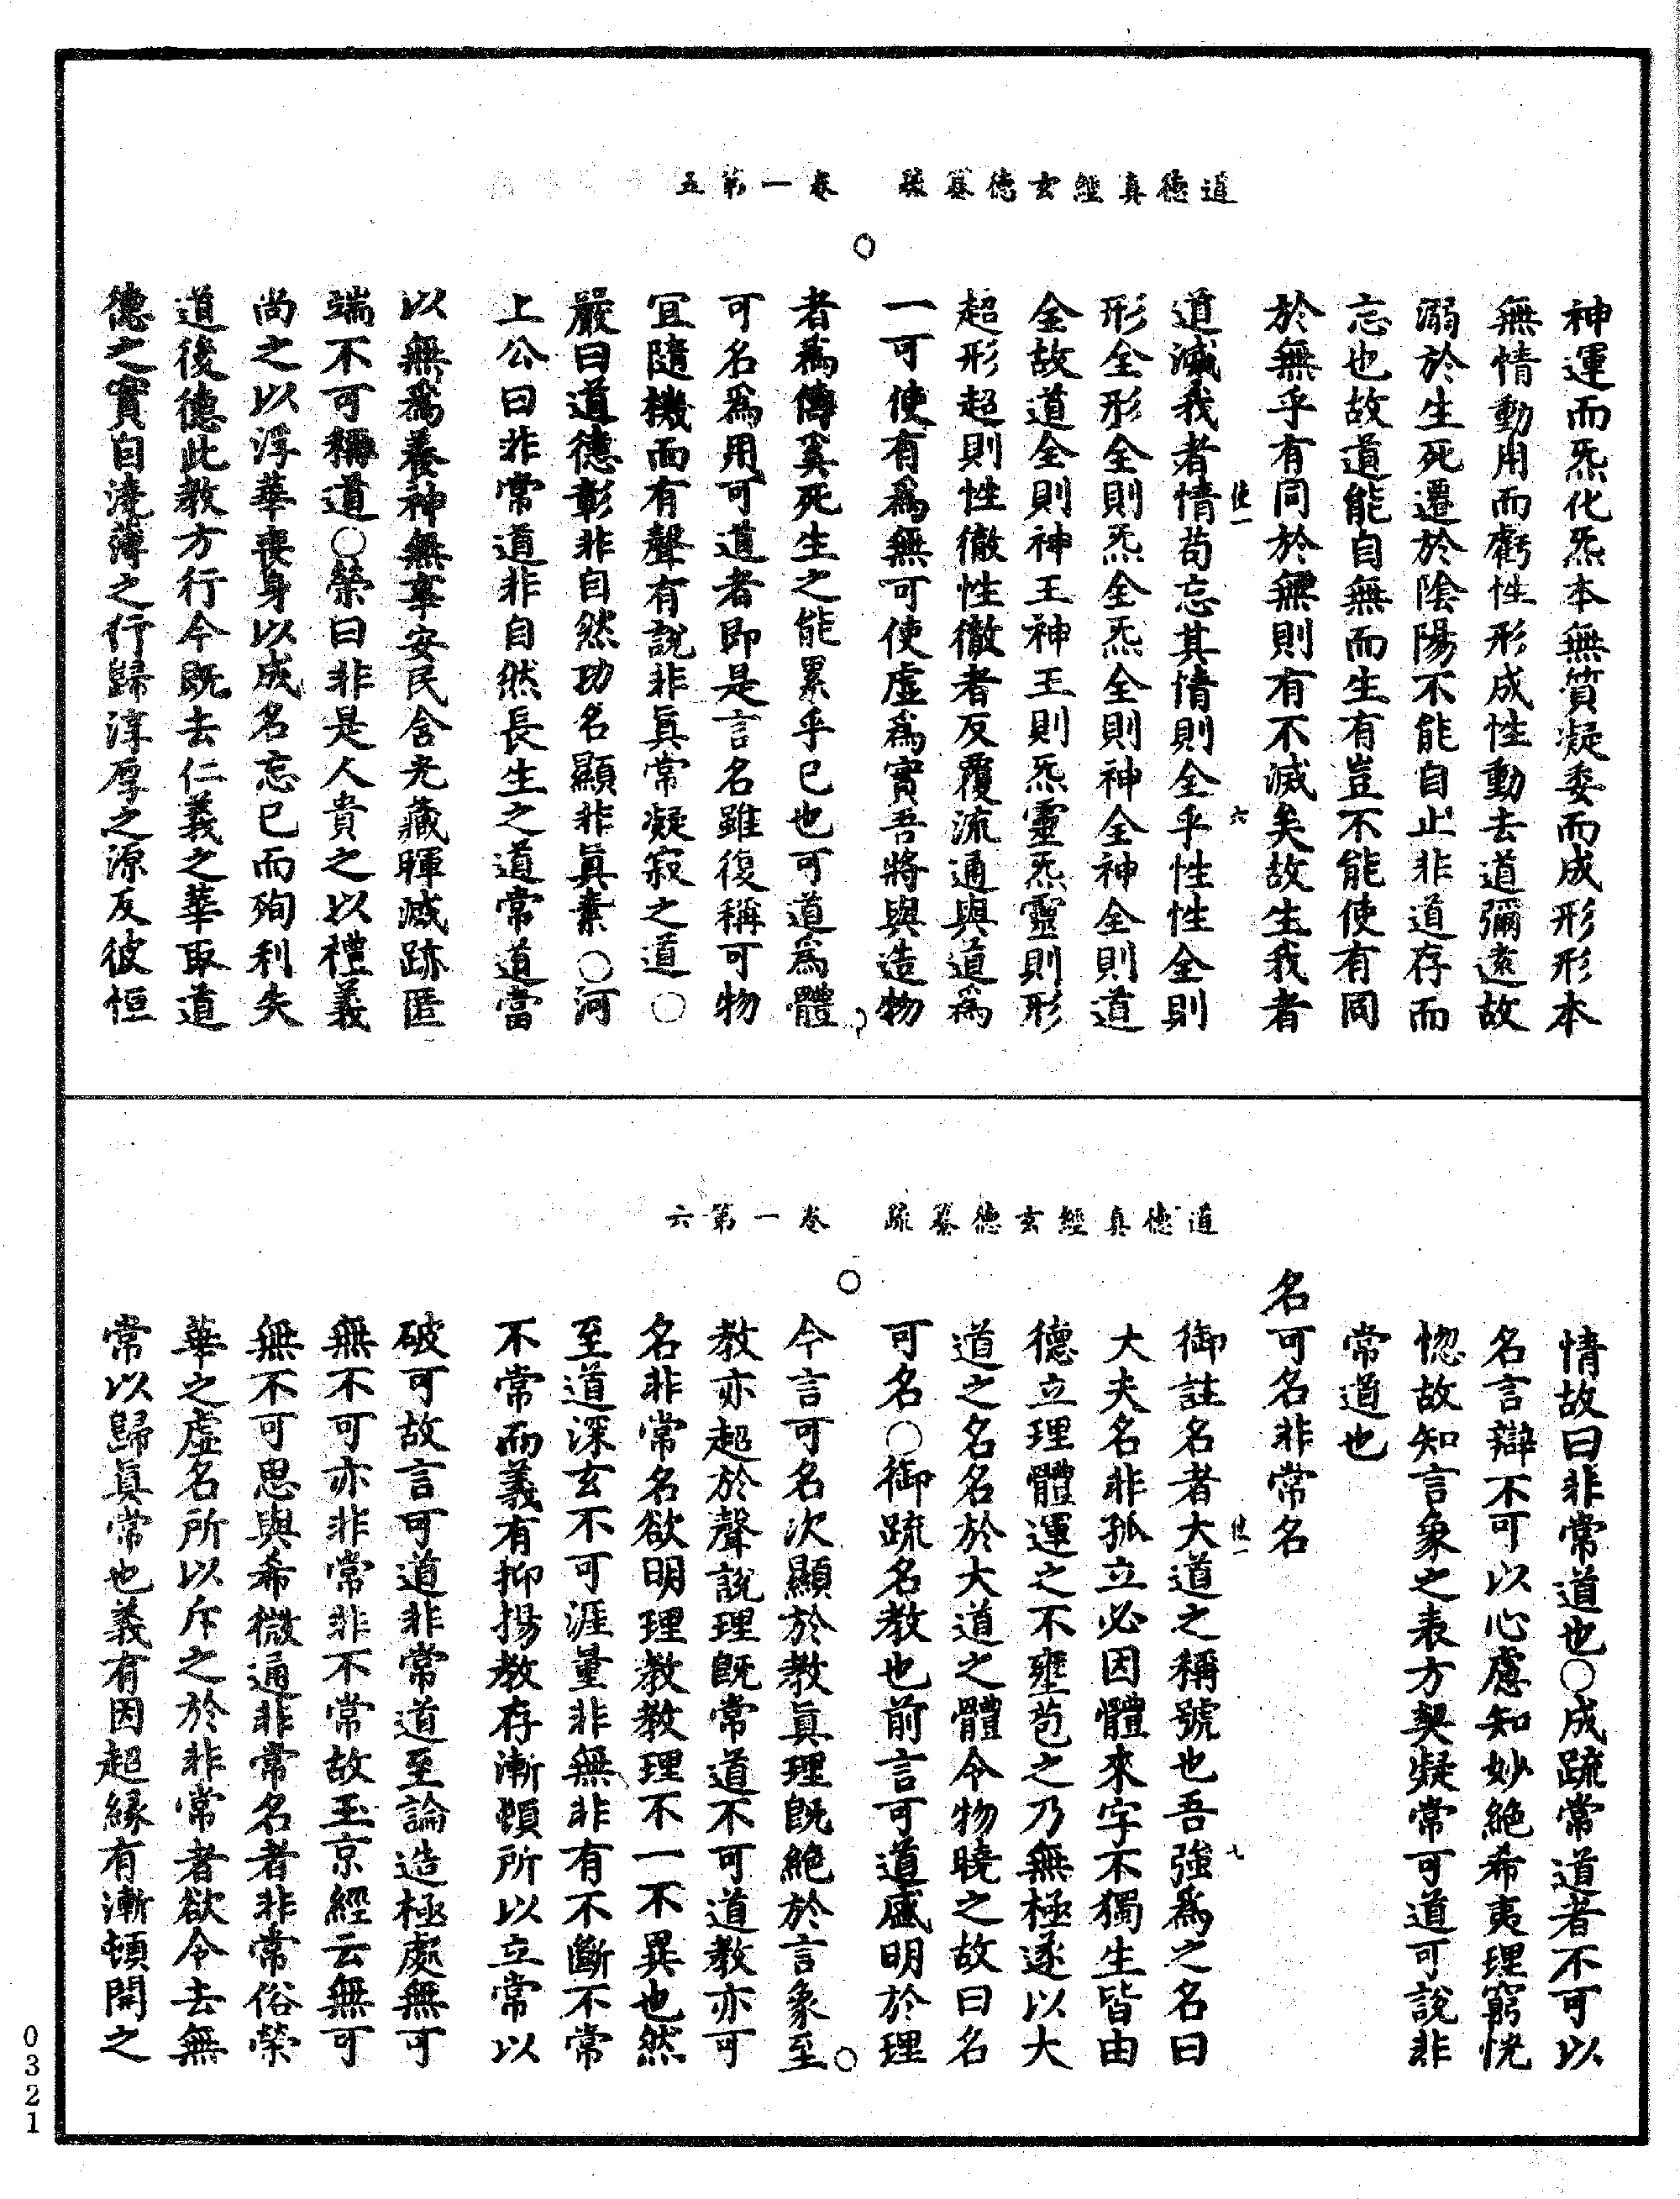 道德真經玄德纂疏　卷一第五
神運而炁化炁本無質凝委而成形形本
無情動用而虧性形成性動去道彌遠故
溺於生死遷於陰陽不能自止非道存而
忘也故道能自無而生有豈不能使有同
於無乎有同於無則有不滅矣故生我者
道滅我者情苟忘其情則全乎性性全則
形全形全則炁全炁全則神全神全則道
全故道全則神王神王則炁靈炁靈則形
超形超則性徹性徹者反覆流通與道為
一可使有為無可使虛為實吾將與造物
者為儔奚死生之能累乎已也可道為體
可名為用可道者即是言名雖復稱可物
宜隨機而有聲有說非真常凝寂之道○
嚴曰道德彰非自然功名顯非真素○河
上公曰非常道非自然長生之道常道當
以無為養神無事安民含光藏暉滅跡匿
端不可稱道○榮曰非是人貴之以禮義
尚之以浮華喪身以成名忘已而殉利失
道後德此教方行今既去仁義之華取道
德之實自澆薄之行歸淳厚之源反彼恒
使一　六
道德真經玄德纂疏　卷一第六
情故曰非常道也○成疏常道者不可以
名言辯不可以心慮知妙絕希夷理窮恍
惚故知言象之表方契凝常可道可說非
常道也
名可名非常名
御註名者大道之稱號也吾強為之名曰
大夫名非孤立必因體來字不獨生皆由
德立理體運之不壅苞之乃無極遂以大
道之名名於大道之體令物曉之故曰名
可名○御疏名教也前言可道盛明於理
今言可名次顯於教真理既絕於言象至
教亦超於聲說理既常道不可道教亦可
名非常名欲明理教教理不一不異也然
至道深玄不可涯量非無非有不斷不常
不常而義有抑揚教存漸頓所以立常以
破可故言可道非常道至論造極處無可
無不可亦非常非不常故玉京經云無可
無不可思與希微通非常名者非常俗榮
華之虛名所以斥之於非常者欲令去無
常以歸真常也義有因超緣有漸頓開之
使一　七
0321